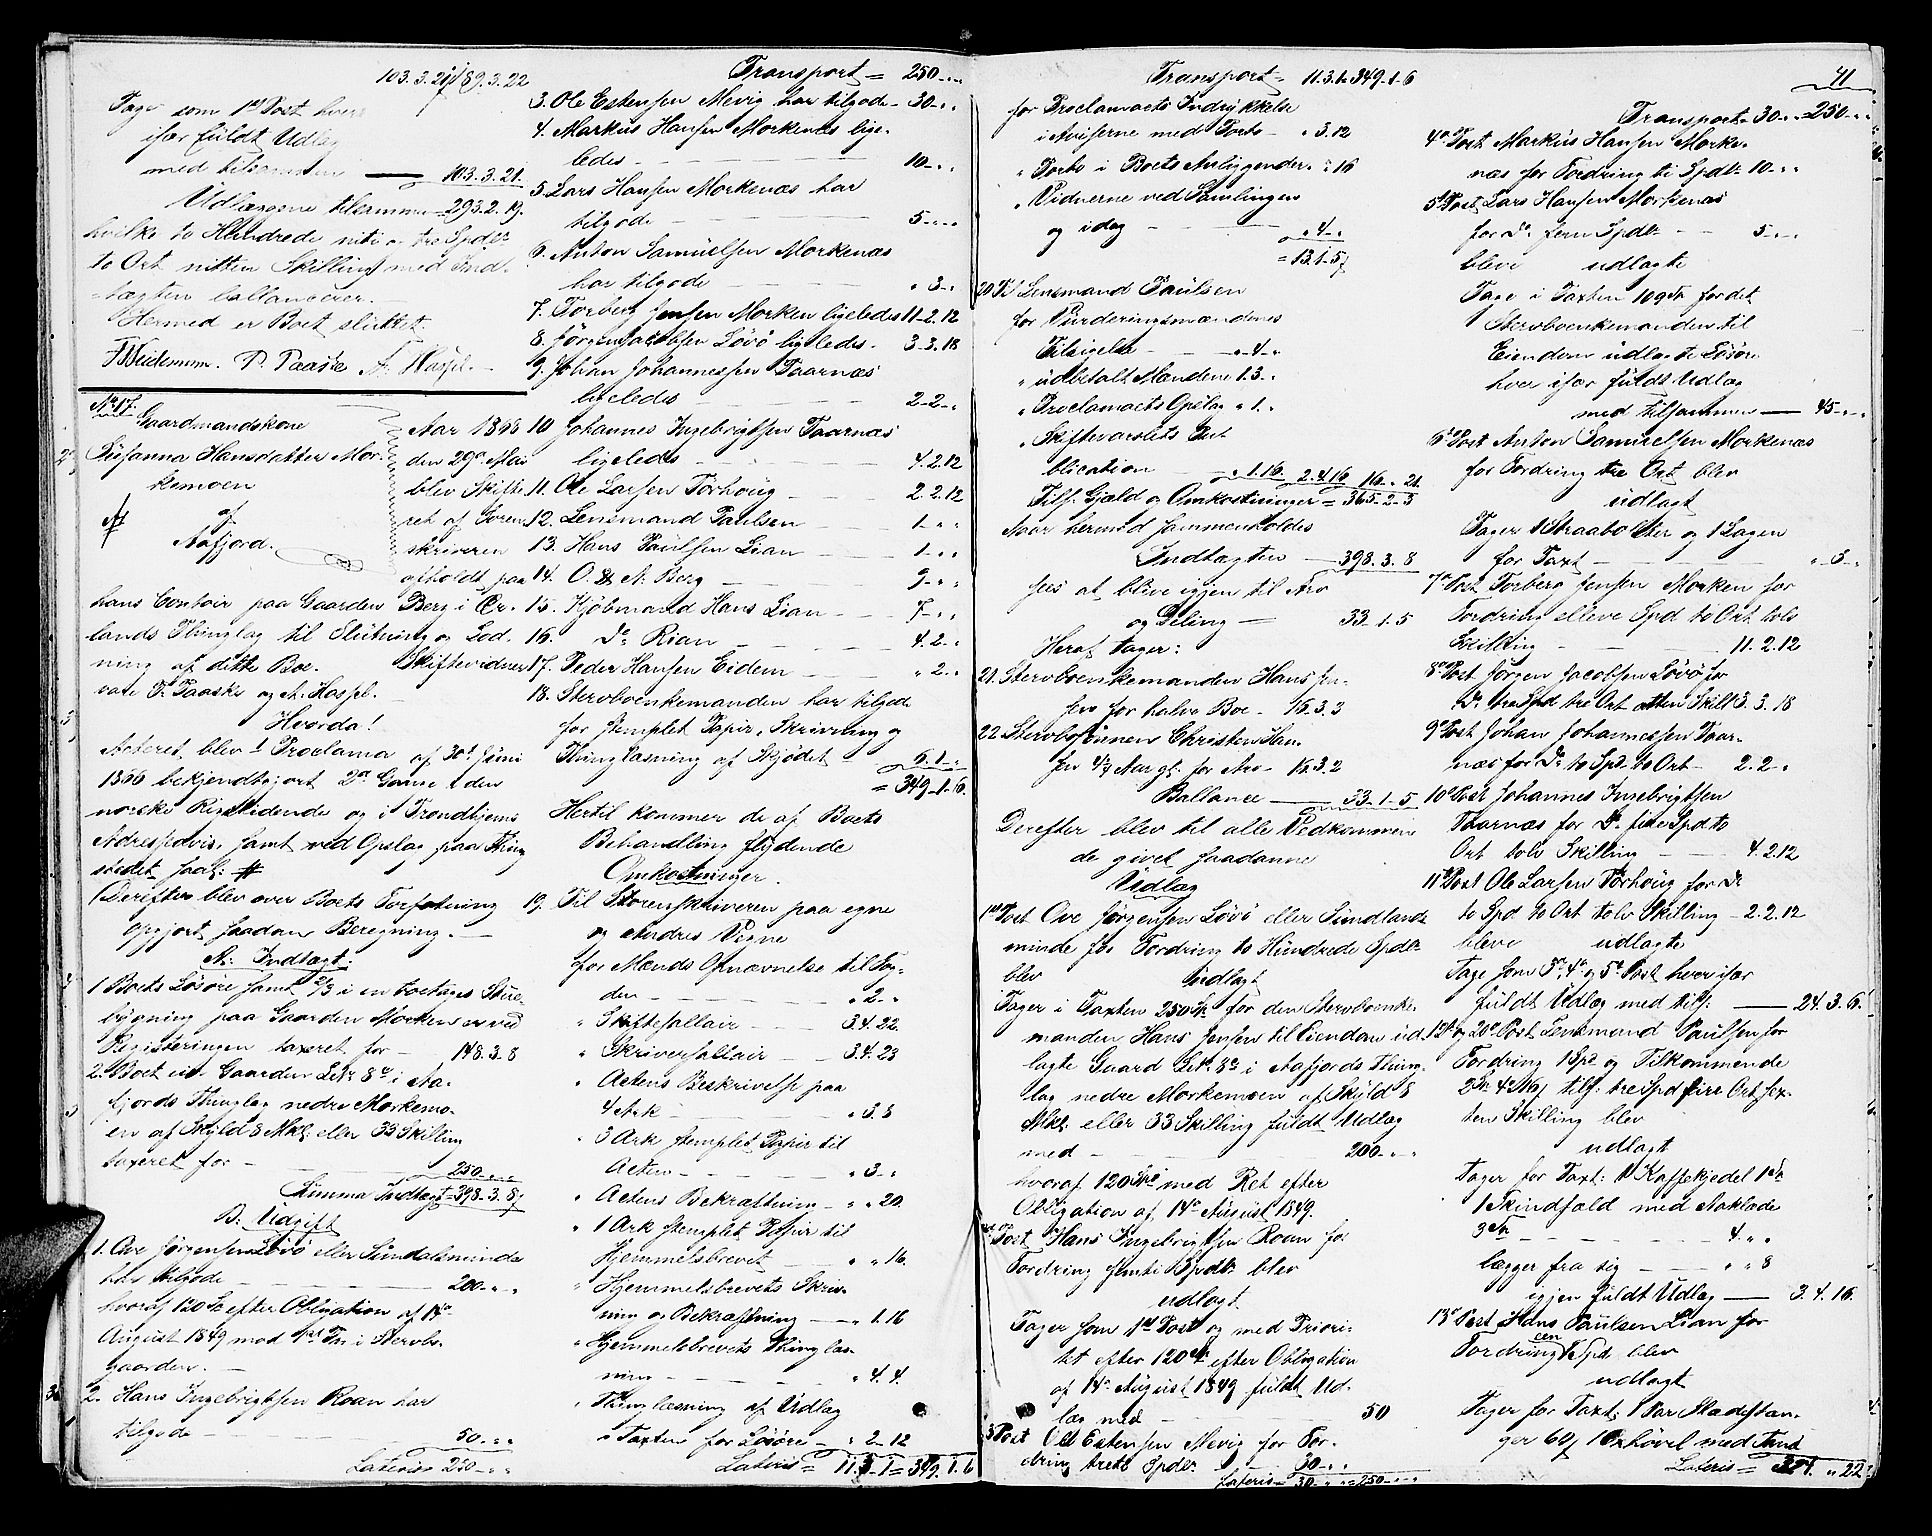 103.3.21 / 189.3.22
Tager som 1ste Post hver
især fuldt Udlæg
med tilsammen — 103.3.21.
Udlægene tilsammen = 293.2.19.
hvilke to Hundrede niti og tre Spdlr
to Ort nitten Skilling med Ind-
tægten ballancerer.
Hermed er Boet sluttet.
P. Paaske A. Haspl.
No 17.
Gaardmandskone
Susanna Hansdatter Mor-
kemoen
af
Aafjord.
Aar 1868
den 29de Mai
blev Skifte-
ret af Soren-
skriveren
afholdt paa
hans Contoir paa Gaarden Berg i Ør-
lands Thinglag til Slutning og Lod-
ning af dette Bo. Skiftevidner
vare P. Paaske og A. Haspl.
Hvorda!
Acteret blev 1 Proclama af 30te Juni
1866 bekjendtgjort 2de Gange i den
norske Rigstidende og i Trondhjems
Adresseavis, samt ved Opslag paa Thing-
stedet saal: #
Derefter blev over Boets Forfatning
opgjort saadan Beregning. —
A. Indtægt:
1 Boets Løsøre samt 2/3 i en toetages Stue-
bygning paa Gaarden Morken er ved
Registeringen taxeret for — 148.3.8
2. Boet eier Gaarden Lit. 8a i Aa-
fjords Thinglag nedre Morkemo-
en af Skyld 8 Mkl: eller 33 Skilling
taxeret for — 250 - „ - „
Summa Indtægt = 398.3.8
B. Udgift
1. Ove Jørgensen Løvø eller Sundalsminde
har tilgode — 200 - „ - „
hvoraf 120 Sp efter Obligation af 14de
August 1849 med 1ste Pr. i Stervbo-
gaarden. —
2. Hans Ingebrigtsen Roan har
tilgode — 50 - „ - „
Lateris 250 - „ - „
Transport = 250 - „ - „
3. Ole Estensen Mevig har tilgode - 30 - „ - „
4. Markus Hansen Morkenæs lige-
ledes — 10 - „ - „
5. Lars Hansen Morkenæs har
tilgode — 5 - „ - „
6. Anton Samuelsen Morkenæs
har tilgode — „ 3 - „
7. Torberg Jensen Morken ligeledes 11-2.12
8. Jørgen Jacobsen Løvø ligeledes - 3-3.18
9. Johan Johannessen Taarnæs
ligeledes — 2-2-„
10 Johannes Ingebrigtsen Taarnæs
ligeleds — 4.2.12
11. Ole Larsen Torhoug — 2.2.12
12. Lensmand Paulsen — 1. „ „
13. Hans Paulsen Lian — 1. „ „
14. O. & A. Berg — 9 - „ „
15. Kjøbmand Hans Lian — 7 - „ „
16. Do Rian — 4.2 - „
17. Peder Hansen Eidem — „ 2 - „
18. Stervboenkemanden har tilgode
for stemplet Papir, Skrivning og
Thinglæsning af Skjødet 6.1 - „
= 349-1.16.
Hertil kommer de af Boets
Behandling flydende
Omkostninger.
19. Til Sorenskriveren paa egne
og Andres Vegne
for Mænds Opnævnelse til Fog-
den — „ 2 - „
" Skiftesallair — 3.4.22.
" Skriversallair — 3.4.23
" Actens Beskrivelse paa
4 Ark — „ 3.8
" 3 Ark stemplet Papir til
Acten — „ 3 - „
" Actens Bekræftning — „ „ 20.
" 1 Ark stemplet Papir til
Hjemmelsbrevet — „ „ 16.
" Hjemmelsbrevets Skriv-
ning og Bekræftning — „ 1.16
" Hjemmelsbrevets Thinglæs-
ning — „ 4.4.
" Thinglæsning af Udlæg
" Taxten for Løsøre — „ 2-12
Lateris = 11.3-1 = 349.1.6
Transport = 11.3.1 = 349-1-6
for Proclamaets Indrykkelse
i Aviserne med Porto — „ 3.12
" Porto i Boets Anliggender. „ „ 16
" Vidnerne ved Samlingen
og idag — „ 4 - „
= 13.1-5
20 Til Lensmand Paulsen
for Vurderingsmændenes
Tilsigelse — „ 4 - „
" udbetalt Mændene 1.3 - „
" Proclamaets Opslag „ 1. „
" Skiftevarslets Pub-
blication — „ 1.16 2.4.16 16. „ 21.
Tils. Gjæld og Omkostninger = 365-2-3
Naar hermed sammenholdes
Indtægten — 398.3.8
sees at blive igjen til Arv
og Deling — 33.1.5
Heraf tager:
21. Stervboenkemanden Hans Jen-
sen for halve Boe - 16.3.3
22. Stervbosønnen Christen Han-
sen 4/7 Aar gl. for Arv - 16.3.2
Ballance — 33.1.5
Derefter blev til alle Vedkommen-
de givet saadanne
Udlæg
1ste Post Ove Jørgensen Løvø eller Sundlands-
minde for Fordring to Hundrede Spdlr
blev udlagt
Tager i Taxten 250 Sp. for den Stervboenke-
manden Hans Jensen til Eiendom ud-
lagte Gaard Litr. 8a i Aafjords Thing-
lag nedre Morkemoen af Skyld 8
Mkl eller 33 Skilling fuldt Udlæg
med — 200 - „ „
hvoraf 120 Spd med Ret efter
Obligation af 14de August 1849.
2den Post Hans Ingebrigtsen Roan for
Fordring femti Spdlr blev
udlagt
Tager som 1ste Post og med Priori-
tet efter 120 Sp efter Obligation
af 14de August 1849 fuldt Ud-
læg med — 50
3 Post Ole Estensen Mevig for For-
dring tretti Spdlr. — 30 „ „
Lateris = 30 - „ „ = 250 - „ - „
41
Transport = 30 - „ - „ = 250 - „ „
4de Post Markus Hansen Morke-
næs for Fordring ti Spdlr 10 - „ „
5te Post Lars Hansen Morkenæs
for Do. fem Spdlr — 5 - „ „
bleve udlagte
Tage i Taxten 109 Sp for det
Stervboenkemanden til
Eiendom udlagte Løsøre
hver især fuldt Udlæg
med tilsammen — 45 - „ „
6te Post Anton Samuelsen Morkenæs
for Fordring tre Ort blev
udlagt
Tager 1 Straabotter og 1 Lagen
for Taxt — „ 3 - „
7de Post Torberg Jensen Morken for
Fordring elleve Spd to Ort tolv
Skilling — 11.2.12
8de Post Jørgen Jacobsen Løvø for
Do. tre Spd tre Ort atten Skill 3.3.18
9de Post Johan Johannessen Taar-
næs for Do to Spd. to Ort - 2.2 - „
10de Post Johannes Ingebrigtsen
Taarnæs for Do. fire Spd to
Ort tolv Skilling — 4.2.12
11te Post Ole Larsen Torhoug for Do
to Spd. to Ort tolv Skilling - 2.2.12
bleve udlagte
Tage som 3de, 4de og 5te Post hver især
fuldt Udlæg med tils: — 24.3.6.
12te og 20de Post Lensmand Paulsen for
Fordring 1 Spd og Tilkommende
2 Sp 4 Ort 16 s tils: tre Spd fire Ort sex-
ten Skilling blev
udlagt
Tager for Taxt: 1 Kaffekjedel 1 Sp
1 Skindfæld med Aaklæde
3 Sp — 4. „ „
lægger fra sig — „ „ 8
igjen fuldt Udlæg — 3.4.16.
13de Post Hans Paulsen Lian for
Fordring een Spd. blev
udlagt
Tager for Taxt: 1 Par Sladestæn-
ger 60 s 1 Oxhøvel med Tand
Lateris = 324. „ 22